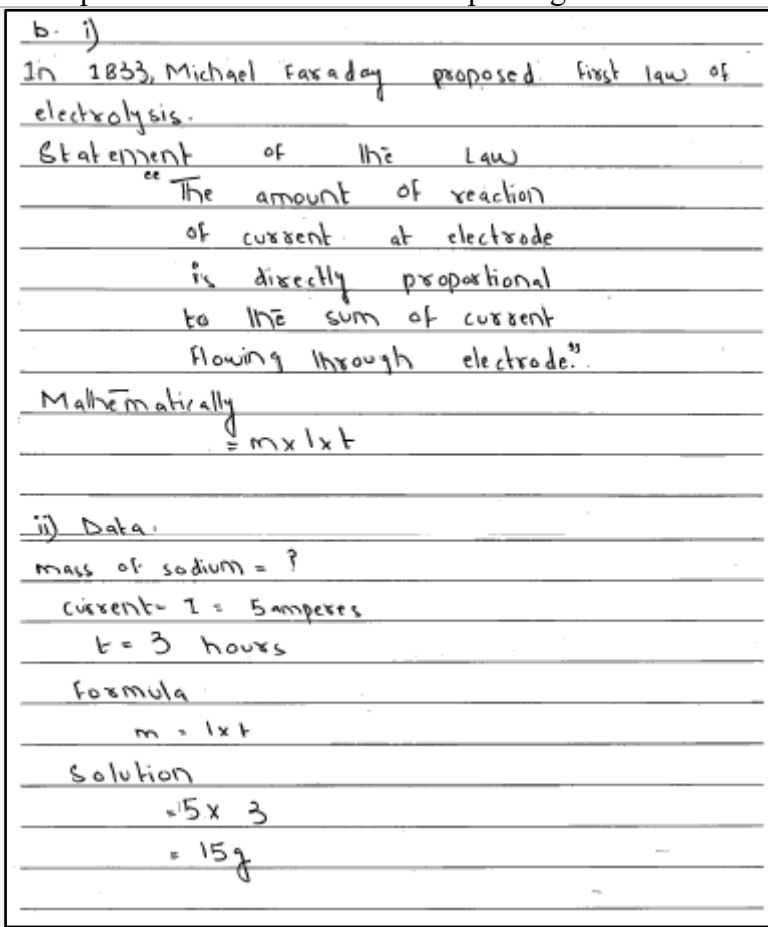 b. i)
In 1833, Michael Faraday proposed first law of
electrolysis.
Statement of the Law
"The amount of reaction
of current at electrode
is directly proportional
to the sum of current
flowing through electrode".
Mathematically
= m x I x t
ii) Data.
mass of sodium = ?
current = I = 5 amperes
t = 3 hours
Formula
m = I x t
Solution
= 5 x 3
= 15g